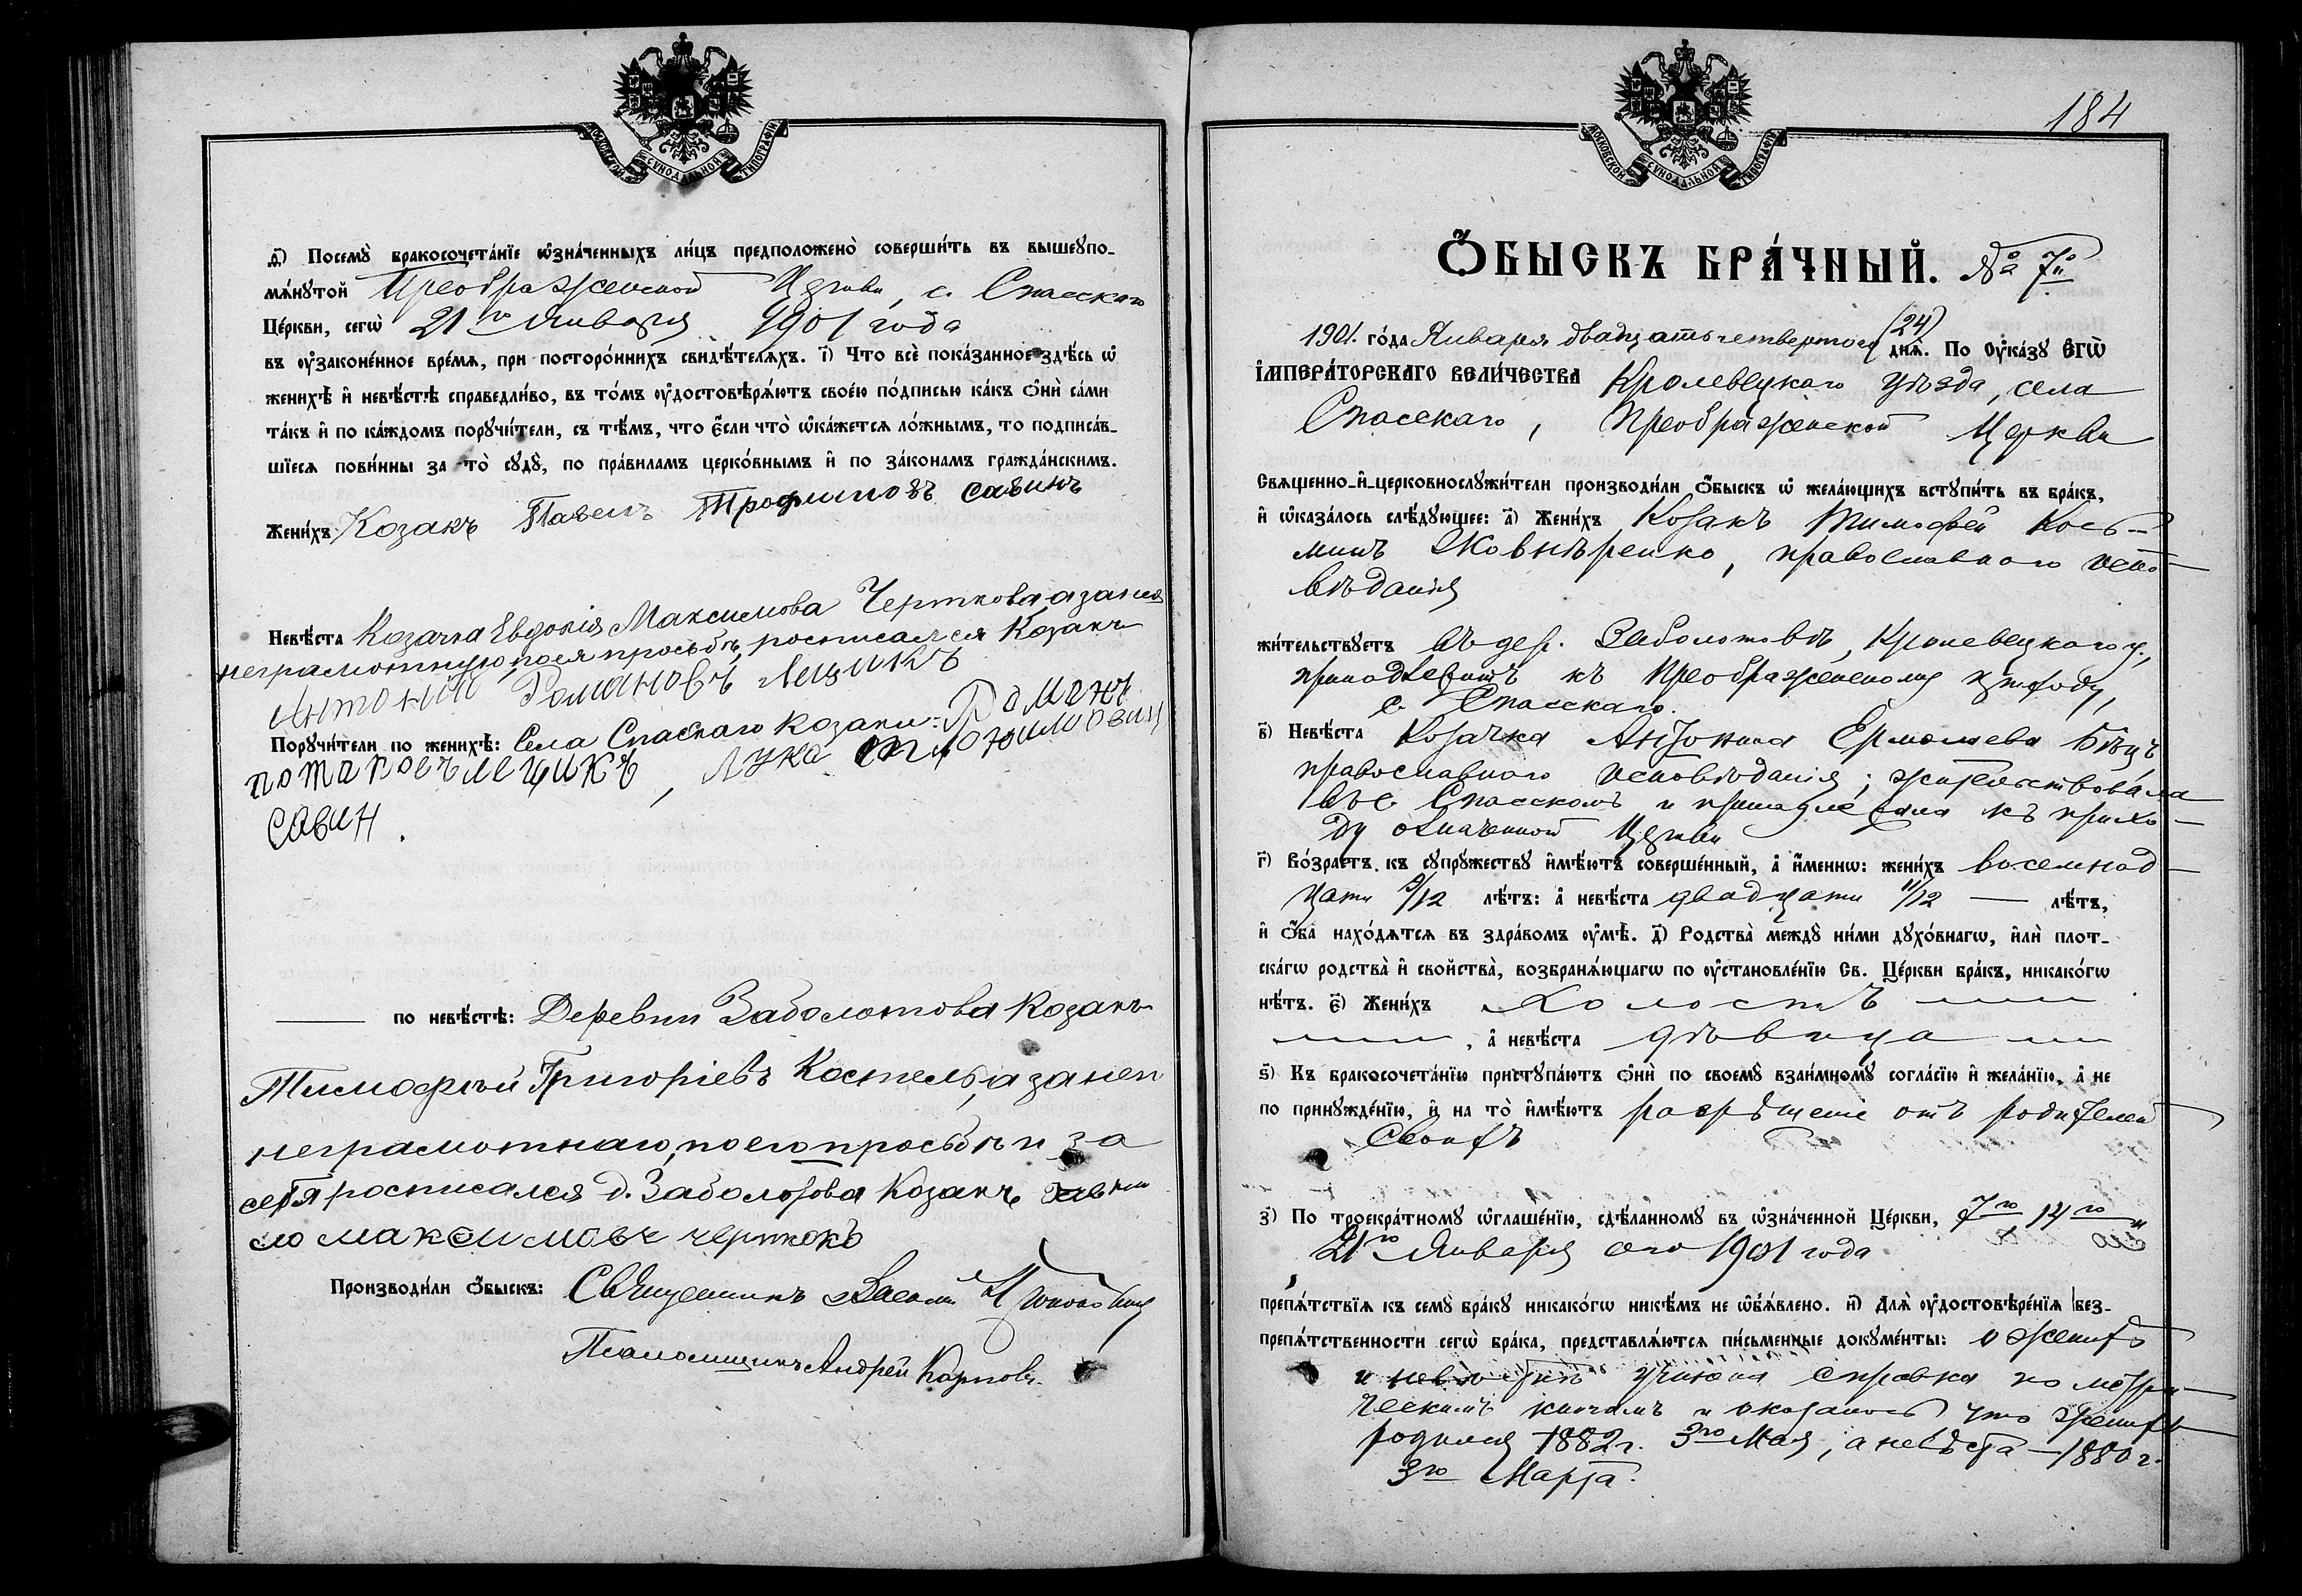 МОСКОВСКОЙ СѴНОДАЛЬНОЙ ТИПОГРАФІИ
д҃) Посемꙋ̀ бракосочета́нїе ѡ҆зна́ченныхъ ли́цъ предположено̀ соверши́ть въ вышеꙋпо-
мѧ́нꙋтой Преображенской Церкви, с. Спасскаго
Це́ркви, сегѡ̀ 21го Января 1901 года
въ ᲂу҆законе́нное вре́мѧ, при посторо́ннихъ свидѣ́телѧхъ. і҃) Что всѐ пока́занное здѣ́сь ѡ҆
женихѣ̀ и҆ невѣ́стѣ справедли́во, въ то́мъ ᲂу҆достовѣрѧ́ютъ свое́ю по́дписью ка́къ ѻ҆нѝ са́ми
та́къ и҆ по ка́ждомъ порꙋчи́тели, съ тѣ́мъ, что є҆́сли что̀ ѡ҆ка́жетсѧ ло́жнымъ, то подписа́в-
шїесѧ пови́нны за то̀ сꙋдꙋ̀, по пра́виламъ церко́внымъ и҆ по зако́намъ гражда́нскимъ.
Жени́хъ Козакъ Павелъ Трофимовъ Савинъ
Невѣ́ста Козачка Евдокія Максимова Черткова, а за нея
неграмотную, по ея просьбѣ, росписался Козакъ
Антоній Романовъ Лещикъ
Порꙋчи́тели по женихѣ̀: Села Спаскаго козаки: Романъ
Потаповъ Лещикъ, Лука
Савин.
по невѣ́стѣ: Деревни Заболотова Козакъ
Тимофѣй Григоріевъ Костель, а за нег
неграмотнаго, по его просьбѣ и за
себя росписался д. Заболотова Козакъ
Максимовъ Чертокъ
Производи́ли ѻ҆́быскъ: Священникъ Василій
Псаломщикъ Андрей Карповъ.
184
МОСКОВСКОЙ СѴНОДАЛЬНОЙ ТИПОГРАФІИ
Ѻ҆́БЫСКЪ БРА́ЧНЫЙ. № 7й
1901. го́да Января двадцать четвертого (24) днѧ̀. По Оу҆ка́зꙋ Є҆ГѠ̀
І҆МПЕРА́ТОРСКАГО ВЕЛИ́ЧЕСТВА Кролевецкаго уѣзда, села
Спасскаго, Преображенской Церкви
Свѧщенно-и҆-церковнослꙋжи́тели производи́ли ѻ҆́быскъ ѡ҆ жела́ющихъ встꙋпи́ть въ бра́къ,
и҆ ѡ҆каза́лось слѣ́дꙋющее: а҃) Жени́хъ Козакъ Тимофей Кось-
минъ Жовнѣренко, православнаго испо-
вѣданія
жи́тельствꙋетъ въ дер. Заболотовѣ, Кролевецкаго у.,
принадлежитъ къ Преображенскому приходу,
с. Спасскаго.
в҃) Невѣ́ста Козачка Антонина Ермолаева Бѣцъ
православнаго исповѣданія; жительствовала
въ с. Спасскомъ и принадлежала къ прихо-
ду означенной Церкви
г҃) Во́зрастъ къ сꙋпрꙋ́жествꙋ и҆мѣ́ютъ соверше́нный, а҆ и҆́менно: жени́хъ восемнад-
цати 9/12 лѣ́тъ: а҆ невѣ́ста двадцати 11/12 — лѣ́тъ,
и҆ ѻ҆́ба нахо́дѧтсѧ въ здра́вомъ ᲂу҆мѣ̀. д҃) Родства̀ междꙋ̀ ни́ми дꙋхо́внагѡ, и҆лѝ плот-
ска́гѡ родства̀ и҆ свойства̀, возбранѧ́ющагѡ по ᲂу҆становле́нїю Св. Це́ркви бра́къ, никако́гѡ
нѣ́тъ. є҃) Жени́хъ Холостъ
, а҆ невѣ́ста дѣвица
ѕ҃) Къ бракосочета́нїю пристꙋпа́ютъ ѻ҆нѝ по своемꙋ̀ взаи́мномꙋ согла́сїю и҆ жела́нїю, а҆ не
по принꙋжде́нїю, и҆ на то̀ и҆мѣ́ютъ разрѣшеніе отъ родителей
своихъ
з҃) По троекра́тномꙋ ѡ҆глаше́нїю, сдѣ́ланномꙋ въ ѡ҆зна́ченной Це́ркви, 7го 14го и
21го Января сего 1901 года
препѧ́тствїѧ къ семꙋ̀ бра́кꙋ никако́гѡ никѣ́мъ не ѡ҆б̾ѧ́влено. и҃) Длѧ̀ ᲂу҆достовѣре́нїѧ без-
препѧ́тственности сегѡ̀ бра́ка, представлѧ́ютсѧ пи́сьменные докꙋме́нты: о женихѣ
и невѣстѣ справка по метри-
ческимъ книгамъ и оказалось что женихъ
родился 1882 г. 3го Мая, а невѣста — 1880 г.
3го Марта.